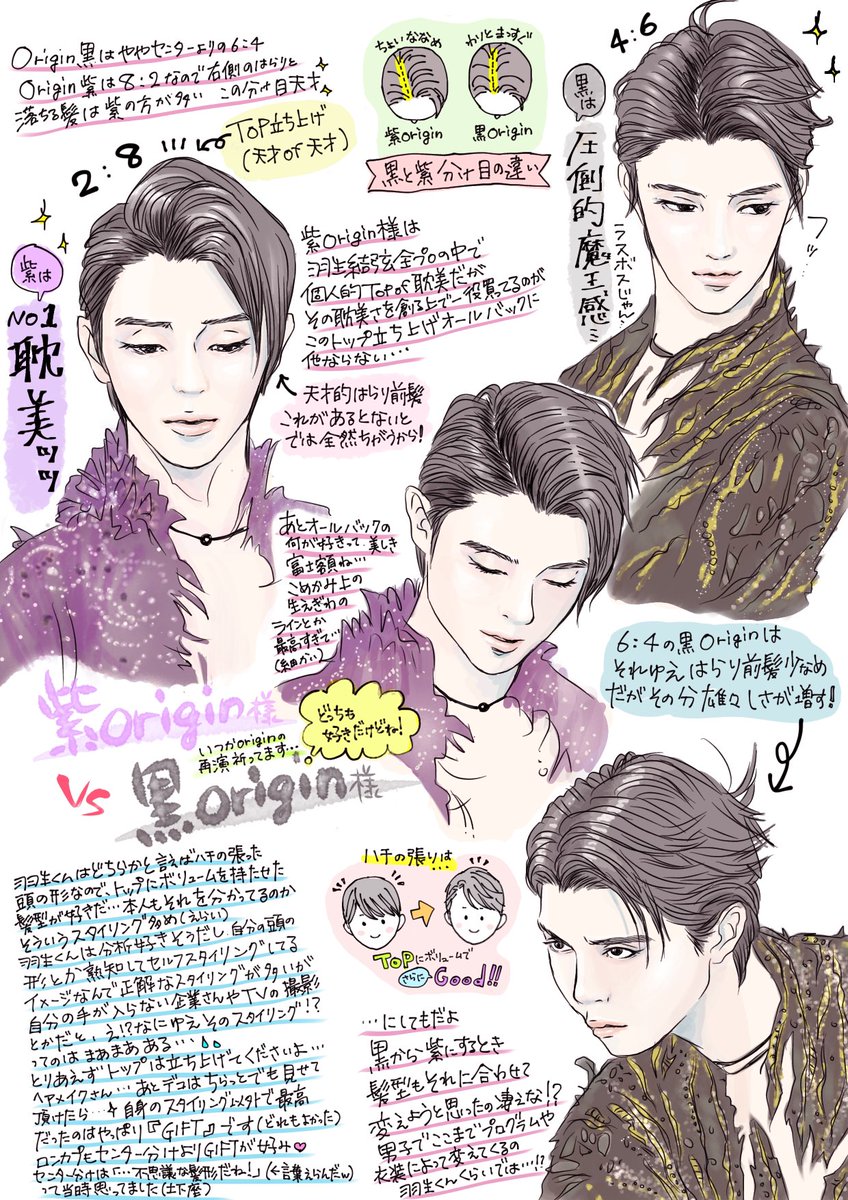 Origin黒はややセンターよりの6:4
Origin紫は8:2なので右側のはらりと
落ちる髪は紫の方が多い この分け目天才
2:8
TOP立ち上げ
(天才of天才)
ちょいななめ
わりとまっすぐ
紫Origin
黒Origin
黒と紫分け目の違い
4:6
黒は
圧倒的魔王感…
ラスボスじゃん…
フッ…
紫は
No1
耽美ッッ
紫Origin様は
羽生結弦全プロの中で
個人的Top of 耽美だが
その耽美さを創る上で一役買ってるのが
このトップ立ち上げオールバックに
他ならない…
天才的はらり前髪
これがあるとないと
では全然ちがうから!
あとオールバックの
何が好きって、美しき
富士額ね…
こめかみ上の
生えぎわの
ラインとか
最高すぎて…
(細かい)
6:4の黒Originは
それゆえはらり前髪少なめ
だがその分雄々しさが増す!
紫Origin様
どっちも
好きだけどね!
いつかOriginの
再演祈ってます…
VS
黒Origin様
羽生くんはどちらかと言えばハチの張った
頭の形なので、トップにボリュームを持たせた
髪型が好きだ…本人もそれを分かってるのか
そういうスタイリング多め(えらい)
羽生くんは分析好きそうだし、自分の頭の
形とか熟知してセルフスタイリングしてる
イメージなんで正解なスタイリングが多いが
自分の手が入らない企業さんやTVの撮影
とかだと、え!?なにゆえそのスタイリング!?
ってのはまあまあある…
とりあえずトップは立ち上げてくださいよ…
ヘアメイクさん…あとデコはちらっとでも見せて
頂けたら…
自身のスタイリング以外で最高
だったのはやっぱり『GIFT』です(どれもよかった)
ロンカプもセンター分けよりGIFTが好み
センター分けは「…不思議な髪形だね!」(←言葉えらんだw)
って当時思ってました(土下座)
ハチの張りは
TOPにボリュームで
さらにGood!!
…にしてもだよ
黒から紫にするとき
髪型もそれに合わせて
変えようと思ったの凄えな!?
男子でここまでプログラムや
衣装によって変えてくるの
羽生くんくらいでは…!?